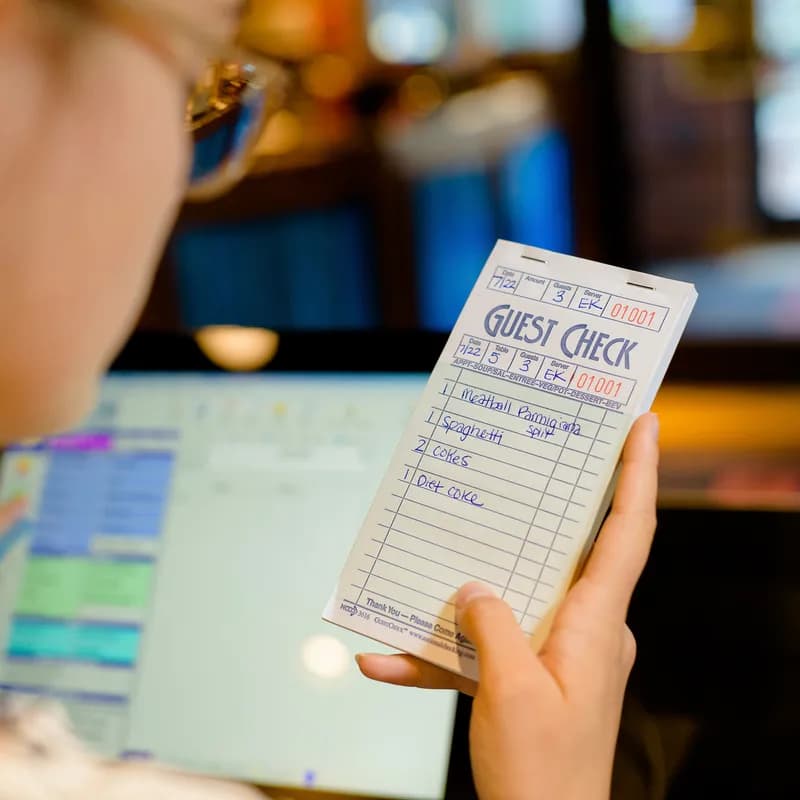 Date Amount Guests Server
7/22 3 EK 01001
GUEST CHECK
Date Table Guests Server
7/22 5 3 EK 01001
APPT-SOUP/SAL-ENTREE-VEG/POT-DESSERT-BEV
1 Meatball Parmigiana
split
1 Spaghetti
2 cokes
1 Diet coke
Thank You — Please Come Again
NCCO 3616 GuestCheck™ www.nationalchecking.com